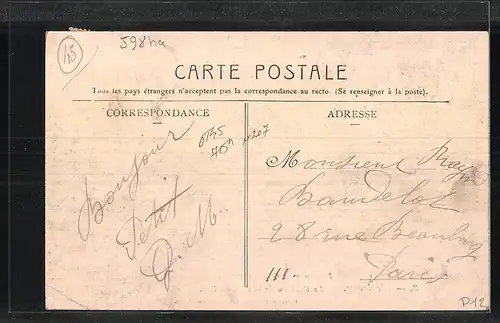 45
598ha
CARTE POSTALE
Tous les pays étrangers n'acceptent pas la correspondance au recto. (Se renseigner à la poste).
CORRESPONDANCE
ADRESSE
Bonjour
Petit
Monsieur
Baudelot
28 rue Beaubourg
Paris
III
P12